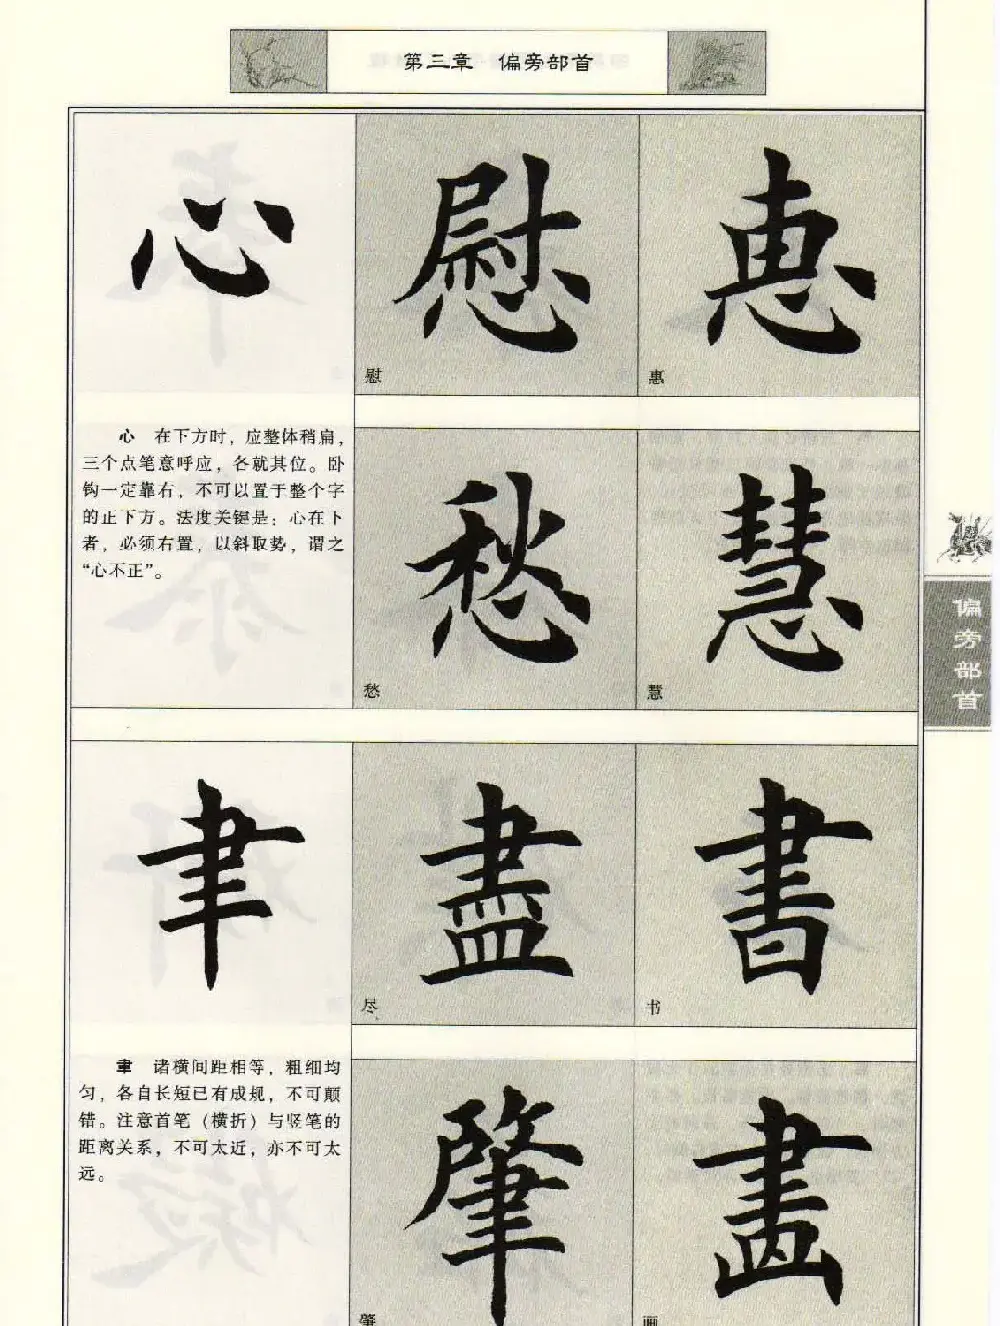 第三章 偏旁部首
心
慰
慰
惠
惠
心 在下方时，应整体稍扁，
三个点笔意呼应，各就其位。卧
钩一定靠右，不可以置于整个字
的正下方。法度关键是：心在下
者，必须右置，以斜取势，谓之
“心不正”。
愁
愁
慧
慧
偏旁部首
聿
盡
尽
書
书
聿 诸横间距相等，粗细均
匀，各自长短已有成规，不可颠
错。注意首笔（横折）与竖笔的
距离关系，不可太近，亦不可太
远。
肇
肇
畫
画